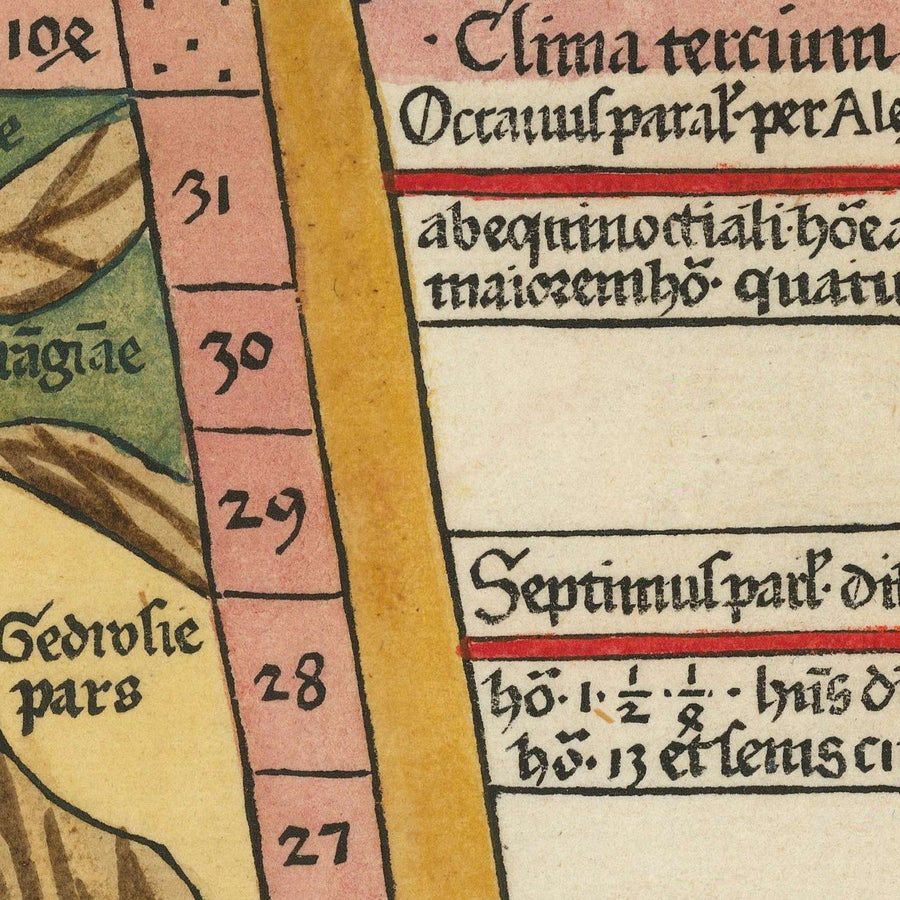 Clima tercium
Octauus paral. per Ale
31
ab equinoctiali hōe a
maiorem hō. quatu
30
29
Septimus parl. dis
Gedrosie
pars
28
hō. 1. 1/2 . 1/8 . hūs d
hō. 13 et semis ci
27